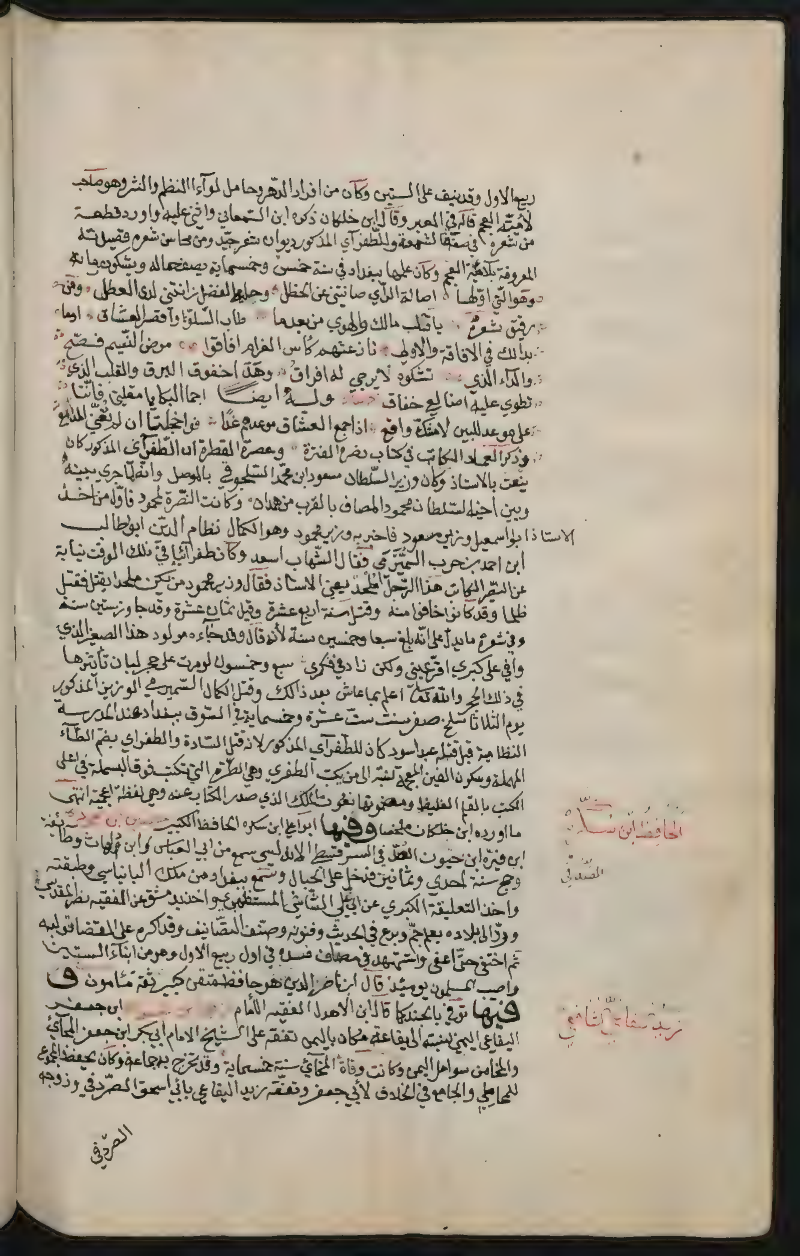 ربيع الاول وقد نيف على الستين وكان من افراد الدهر وحامل لوآء النظم والنثر وهو صاحب
لامية العجم قاله في العبر وقال ابن خلكان ذكره ابن السمعاني واثنى عليه واورد قطعة
من شعره في صفة الشمعة وللطغرآي المذكور ديوان شعر جيد ومن محاسن شعره قصيدته
المعروفة بلامية العجم وكان عملها ببغداد في سنة خمس وخمسماية يصف حاله ويشكو زمانه
وهو التي اولها اصالة الراي صانتني عن الخطل وحلية الفضل زانتني لدى العطل ومن
رقيق شعره يا قلب مالك والهوى من بعدما طاب السلو وأقصر العشاق اوما
بدالك في الافاقة والاولى نازعتهم كاس الغرام افاقوا مرض النسيم فصح
والدآء الذي تشكوه لا يرجى له افراق وهدا خفوق البرق والقلب الذي
تطوى عليه اضالعي خفاق وله ايضا اجما البكا يا مقلتي فاننا
على موعد للبين لا شك واقع اذا جمع العشاق موعدهم غدا فواخجلتا ان لم تعني المدامع
وذكر العماد الكاتب في كتاب نصرة الفترة وعصرة القطرة ان الطغرآي المذكور كان
ينعت بالاستاذ وكان وزير السلطان مسعود ابن محمد السلجوقي بالموصل وانه لما جرى بينه
وبين أخيه السلطان محمود المصاف بالقرب من همدان وكانت النصرة لمحمود فاول من اخذ
الاستاذ ابو اسمعيل وزير مسعود فاخبر به وزير محمود وهو الكمال نظام الدين ابو طالب
ابن احمد بن حرب السميرمي فقال الشهاب اسعد وكان طغرآئيا في ذلك الوقت نيابة
عن النصير الكاتب هذا الرجل ملحد يعني الاستاذ فقال وزير محمود من يكن ملحدا يقتل فقتل
ظلما وقد كانوا خافوا منه وقتل سنة اربع عشرة وقيل ثمان عشرة وقد جاوز ستين سنة
وفي شعره ما يدل على انه بلغ سبعا وخمسين سنة لانه قال وقد جاءه مولود هذا الصغير الذي
وافى على كبري اقر عيني ولكن زاد في فكري سبع وخمسون لو مرت على حجر لبان تأثيرها
في ذلك الحجر والله تعالى اعلم بما عاش بعد ذالك وقتل الكمال السميرمي الوزير المذكور
يوم الثلاثا سلخ صفر سنت ست عشرة وخمسماية في السوق ببغداد عند المدرسة
النظامية قيل قتله عبد اسود كان للطغرآي المذكور لانه قتل استاده والطغراي بضم الطآء
المهملة وسكون الغين المعجمة نسبة الى من يكتب الطغرى وهي الطرة التي تكتب فوق البسملة في اعلى
الكتب بالقلم الغليظ ومضمونها نعوت الملك الذي صدر الكتاب عنه وهي لفظة عجمية انتهى
ما اورده ابن خلكان ملخصا وفيها ابو علي ابن سكره الحافظ الكبير حسين بن محمد
ابن فيره ابن حيون الصدفي السرقسطي الاندلسي سمع من ابي العباس ابن دلهاث وطائفة
وحج سنة احدى وثمانين فدخل على الحبال وسمع ببغداد من ملك البانياسي وطبقته
واخذ التعليقة الكبرى عن ابي بكر الشاشي المستظهري واخذ بدمشق عن الفقيه نصر المقدسي
وردّ الى بلاده بعلم جم وبرع في الحديث وفنونه وصنف التصانيف وقد اكره على القضا فوليه
ثم اختفى حتى اعفي واستشهد في مصاف قتنده في اول ربيع الاول وهو من ابناء الستين
واصيب المسلمون يومئذ قال ابن ناصر الدين هو حافظ متقن كبير ثقة مأمون
وفيها توفي بالجند كما قاله ابن الاهدل الفقيه الامام زيد بن عبد الله ابن جعفر
اليفاعي اليمني نسبة الى يفاعة مكان باليمن تفقه على الشيخ الامام ابي بكر ابن جعفر المخآئي
والمخا من سواحل اليمن وكانت وفاة المخآئي سنة خمسماية وقد تخرج به جماعة وكان يحفظ المجموع
للمحاملي والجامع في الخلاف لأبي جعفر وتفقه زيد اليفاعي بابي اسحق الصردفي وزوجه
الصردفي
الحافظ ابن سكره
الصدفي
زيد اليفاعي الشافعي